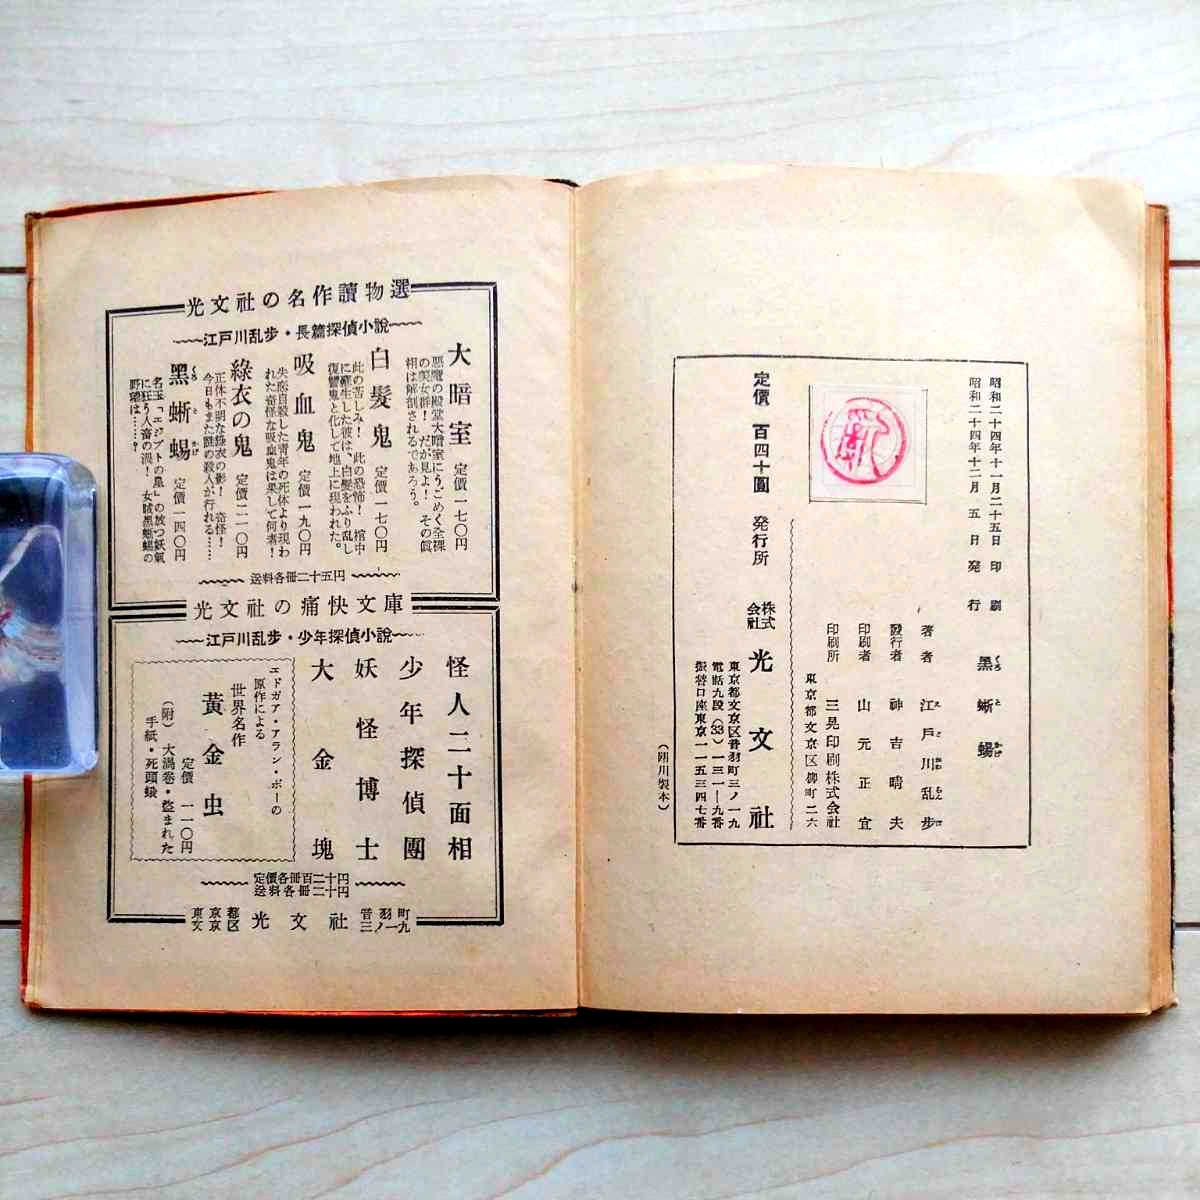 昭和二十四年十一月二十五日 印刷
昭和二十四年十二月五日 発行
黒蜥蜴
くろとかげ
著者 江戸川乱歩
發行者 神吉晴夫
印刷者 山元正宜
印刷所 三晃印刷株式会社
東京都文京区柳町二六
定價 百四十圓
発行所 株式会社 光文社
東京都文京区音羽町三ノ一九
電話九段(33)一三一一九番
振替口座東京一一五三四七番
製本)
光文社の名作讀物選
江戸川乱歩・長篇探偵小說
大暗室 定價一七〇円
悪魔の殿堂大暗室にうごめく全裸
の美女群! だが見よ! その眞
相は解剖されるであろう。
白髮鬼 定價一七〇円
此の苦しみ! 此の恐怖! 棺中
に蘇生した彼は、白髮をふり乱し
復讐鬼と化して地上に現われた。
吸血鬼 定價一九〇円
失恋自殺した青年の死体より現わ
れた奇怪な吸血鬼は果して何者!
綠衣の鬼 定價二一〇円
正体不明な綠衣の影! 奇怪!
今日もまた謎の殺人が行れる……
黑蜥蜴 定價一四〇円
くろとかげ
名玉「エジプトの星」の放つ妖氣
に狂う人畜の渦! 女賊黒蜥蜴の
野望は……?
送料各冊二十五円
光文社の痛快文庫
江戸川乱歩・少年探偵小說
怪人二十面相
少年探偵團
妖怪博士
大金塊
エドガア・アラン・ポーの
原作による
世界名作
黃金虫
定價 一一〇円
(附) 大渦卷・盜まれた
手紙・死頭蛾
定價各冊百二十円
送料各冊二十円
東京都文京区 光文社 音羽町三ノ一九